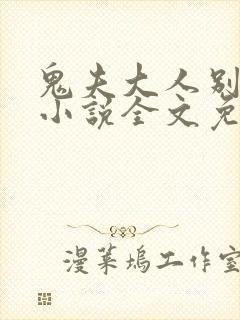 鬼夫大人别
小说全文免
漫菓坞工作室